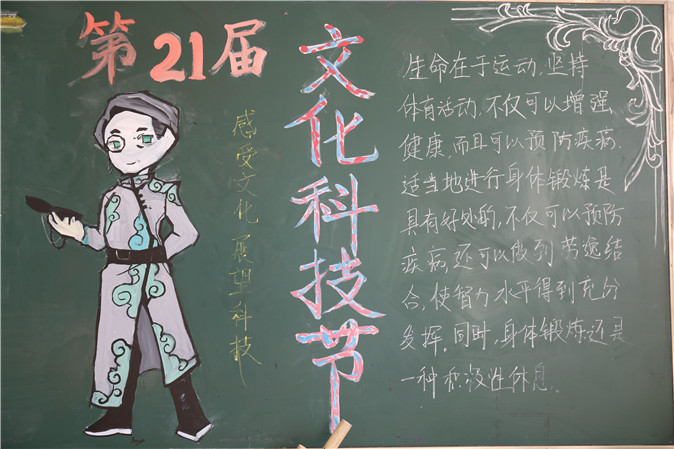 第21届
文化科技节
感受文化 展望科技
生命在于运动,坚持
体育活动,不仅可以增强
健康,而且可以预防疾病.
适当地进行身体锻炼是
具有好处的,不仅可以预防
疾病,还可以做到劳逸结
合,使智力水平得到充分
发挥.同时,身体锻炼还是
一种积极性休息.